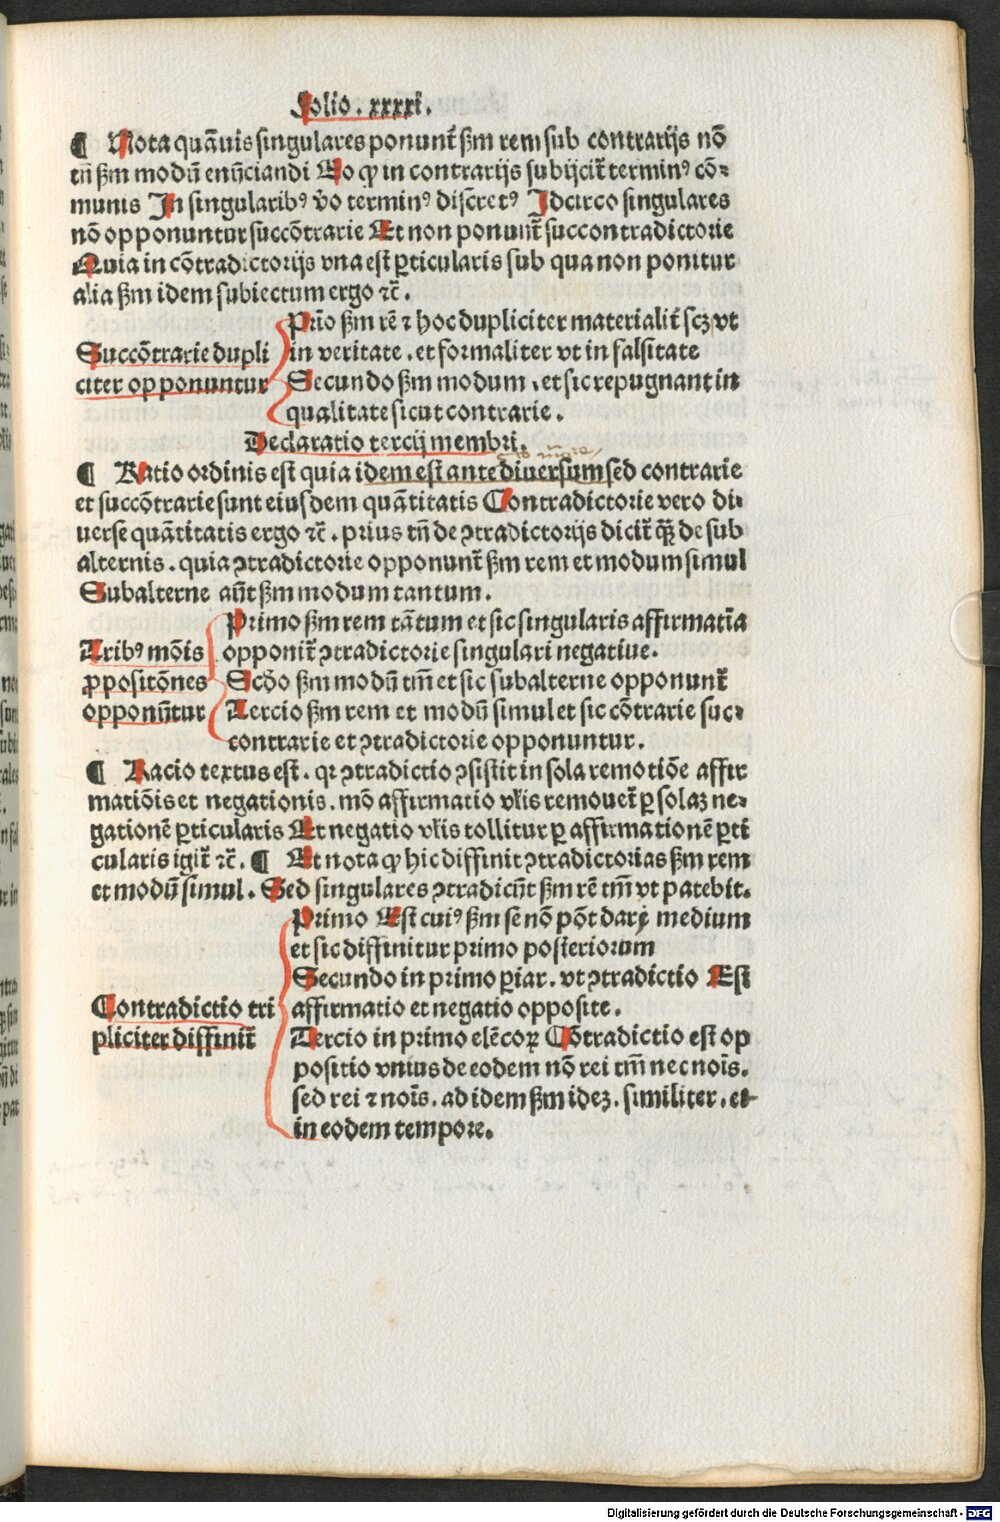 Folio. xxxxi.
¶ Nota quāuis singulares ponunt̄ sm̄ rem sub contrarijs nō
tn̄ sm̄ modū enūciandi Eo ꝙ in contrarijs subijcit̄ terminꝰ cō⸗
munis In singularibꝰ v̄o terminꝰ discretꝰ Idcirco singulares
nō opponuntur succōtrarie Et non ponunt̄ succontradictorie
Quia in cōtradictorijs vna est ꝑticularis sub qua non ponitur
alia sm̄ idem subiectum ergo ⁊c̄.
Succōtrarie dupli
citer opponuntur
Prīo sm̄ rē ⁊ hoc dupliciter materialit̄ scꝫ vt
in veritate. et formaliter vt in falsitate
Secundo sm̄ modum. et sic repugnant in
qualitate sicut contrarie.
Declaratio tercij membri.
¶ Ratio ordinis est quia idem est ante diuersum sed contrarie
et succōtrarie sunt eiusdem quātitatis Contradictorie vero di⸗
uerse quātitatis ergo ⁊c̄. prius tn̄ de ꝯtradictorijs dicit̄ qꝫ̄ de sub
alternis. quia ꝯtradictorie opponunt̄ sm̄ rem et modum simul
Subalterne aūt sm̄ modum tantum.
Tribꝰ mōis
ꝓpositōnes
opponūtur
Primo sm̄ rem tātum et sic singularis affirmatīa
opponit̄ ꝯtradictorie singulari negatiue.
Scḋo sm̄ modū tm̄ et sic subalterne opponunt̄
Tercio sm̄ rem et modū simul et sic cōtrarie suc⸗
contrarie et ꝯtradictorie opponuntur.
¶ Racio textus est. qr ꝯtradictio ꝯsistit in sola remotiōe affir
matiōis et negationis. mō affirmatio vl̄is remouet̄ ꝑ solaꝫ ne⸗
gationē ꝑticularis Et negatio vl̄is tollitur ꝑ affirmationē ꝑti
cularis igit̄ ⁊c̄. ¶ Et nota ꝙ hic diffinit ꝯtradictorias sm̄ rem
et modū simul. Sed singulares ꝯtradicūt sm̄ rē tm̄ vt patebit.
Contradictio tri
pliciter diffinit̄
Primo Est cuiꝰ sm̄ se nō pōt dari medium
et sic diffinitur primo posteriorum
Secundo in primo ꝑiar. vt ꝯtradictio Est
affirmatio et negatio opposite.
Tercio in primo elēcoꝝ Cōtradictio est op
positio vnius de eodem nō rei tm̄ nec noīs.
sed rei ⁊ noīs. ad idem sm̄ ideꝫ. similiter. et
in eodem tempore.